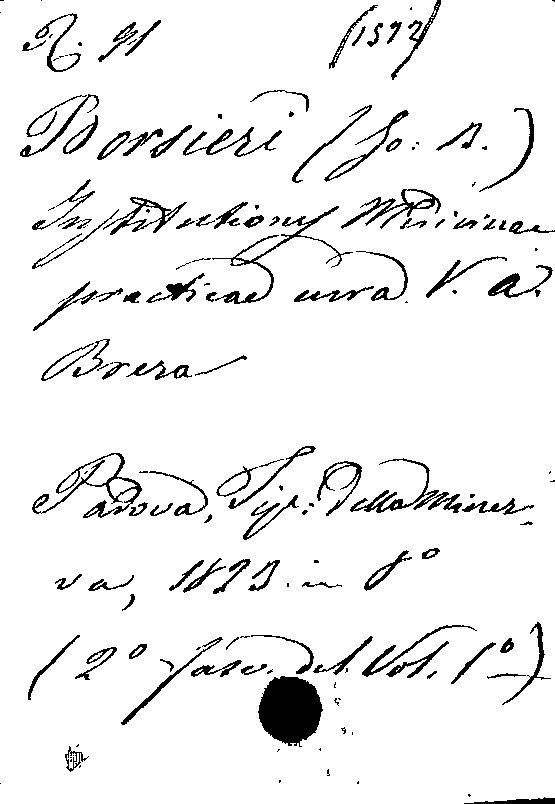 R. 91 (1572)
Borsieri (Jo: B.)
Institutiones Medicinae
practicae cura V. A.
Brera
Padova, Tip: della Miner-
va, 1823 in 8º
(2º fasc. del Vol. 1º)